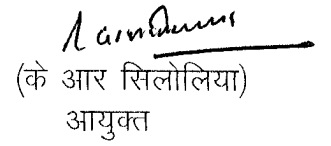 (के आर सिलोलिया)
आयुक्त